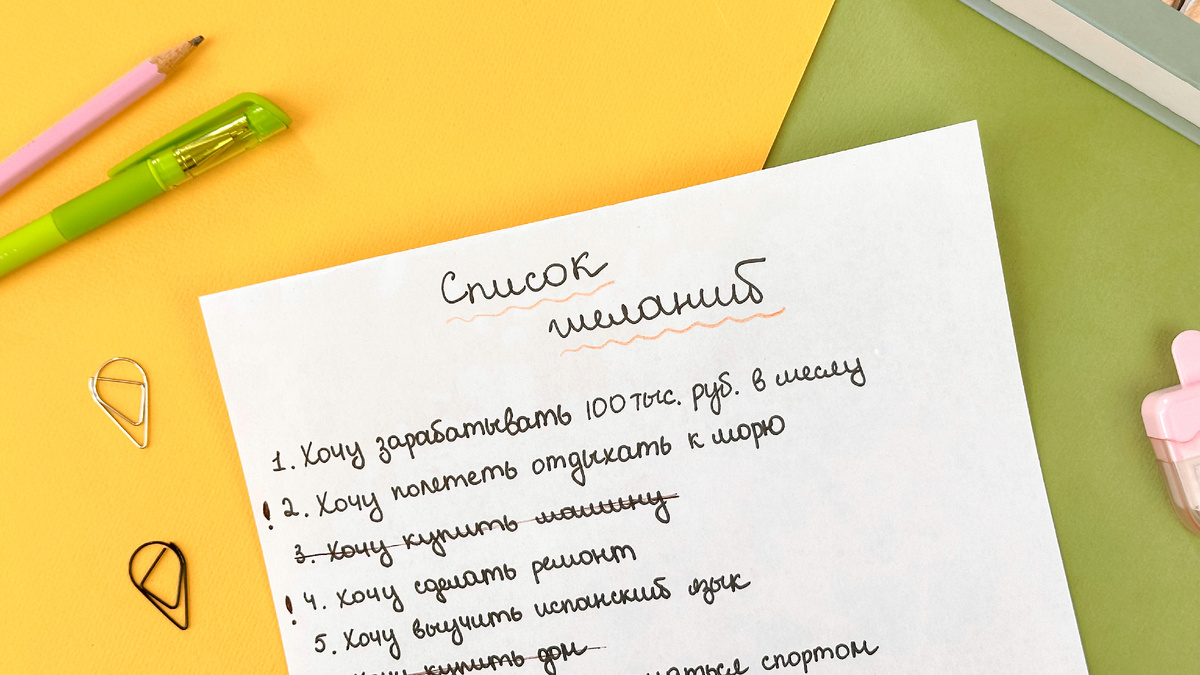 Список
желаний
1. Хочу зарабатывать 100 тыс. руб. в месяц
! 2. Хочу полететь отдыхать к морю
3. Хочу купить машину
! 4. Хочу сделать ремонт
5. Хочу выучить испанский язык
купить дом
спортом